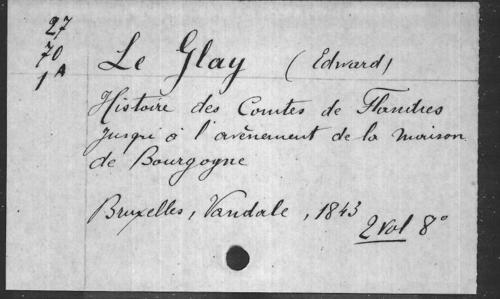 27
70
1A
Le Glay (Edward)
Histoire des Comtes de Flandres
jusqu'à l'avènement de la maison
de Bourgogne
Bruxelles, Vandale, 1843
2 vol 8°